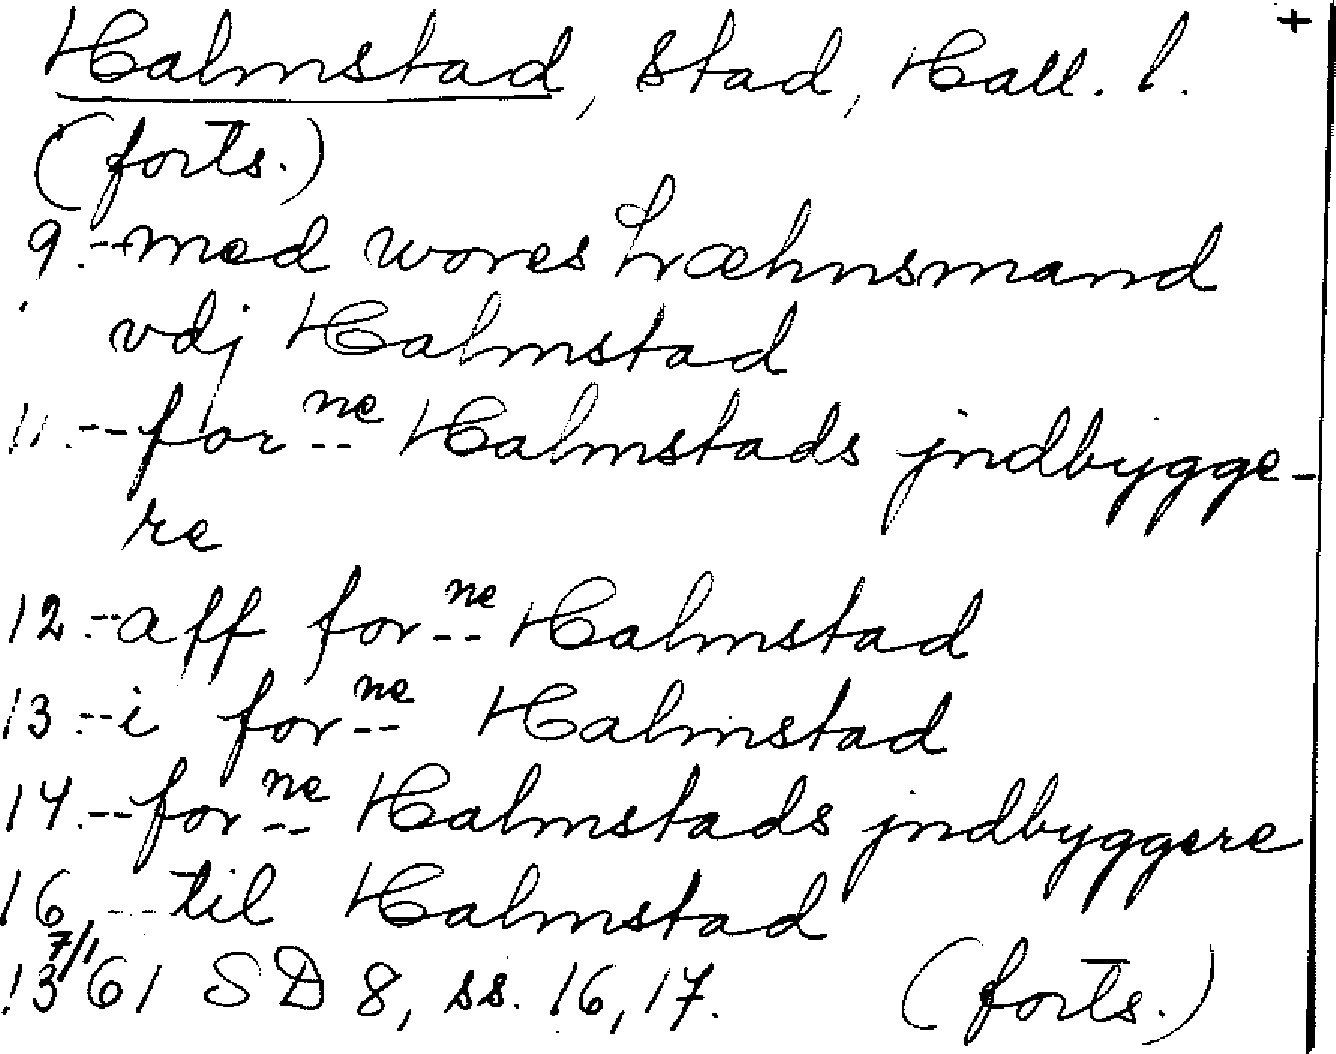 +
Halmstad, stad, Hall. l.
(forts.)
9.--med wores Lræhnsmand
vdj Halmstad
11.--for ne Halmstads jndbygge-
re
12.--aff for ne Halmstad
13.--i for ne Halmstad
14.--for ne Halmstads jndbyggere
16.--til Halmstad
13 7/1 61 SD 8, ss. 16, 17. (forts.)